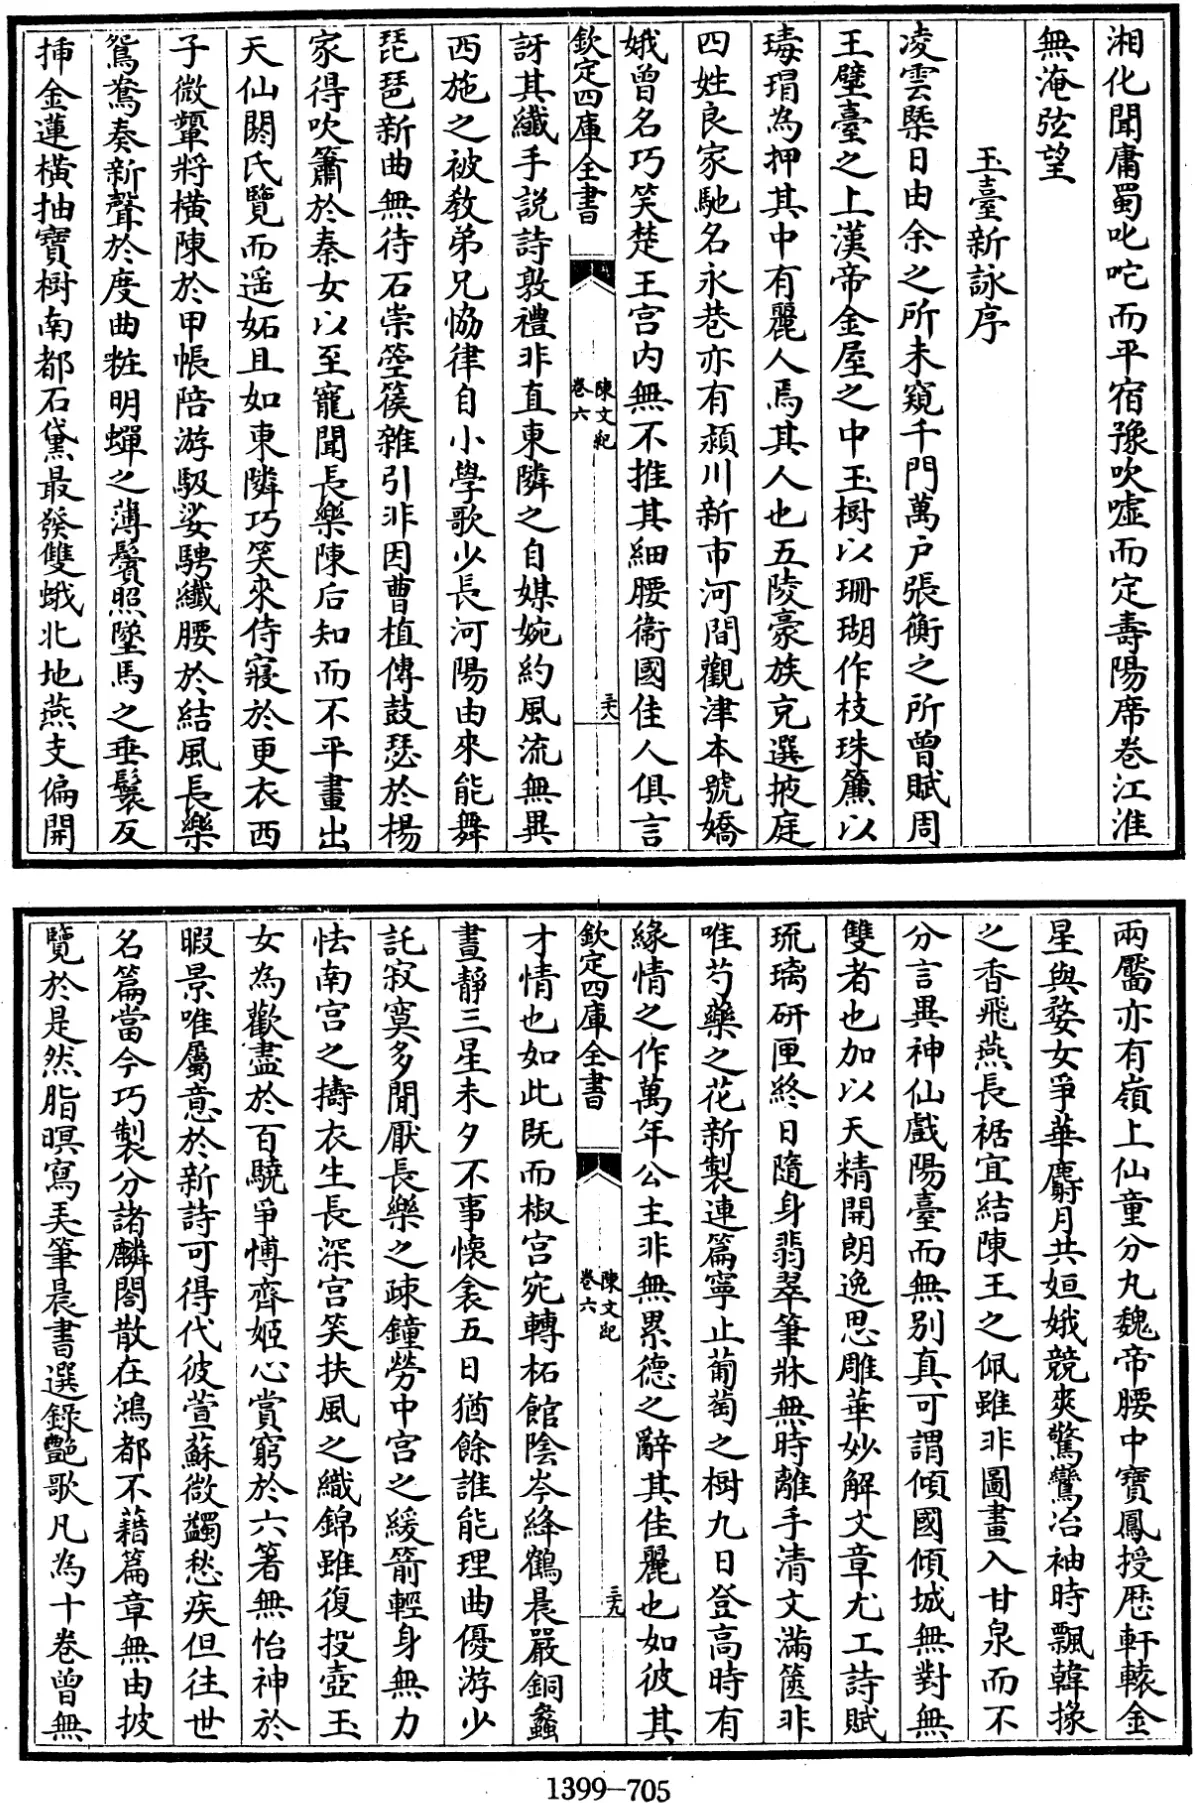 湘化聞庸蜀叱咜而平宿豫吹噓而定壽陽席卷江淮
無淹弦望
玉臺新詠序
凌雲槩日由余之所未窺千門萬户張衡之所曾賦周
王璧臺之上漢帝金屋之中玉樹以珊瑚作枝珠簾以
瑇瑁為押其中有麗人焉其人也五陵豪族充選掖庭
四姓良家馳名永巷亦有潁川新市河間觀津本號嬌
娥曾名巧笑楚王宫内無不推其細腰衞國佳人俱言
欽定四庫全書
陳文紀
卷六
三十八
訝其纖手説詩敦禮非直東隣之自媒婉約風流無異
西施之被教弟兄協律自小學歌少長河陽由來能舞
琵琶新曲無待石崇箜篌雜引非因曹植傳鼓瑟於楊
家得吹簫於秦女以至寵聞長樂陳后知而不平畫出
天仙閼氏覽而遥妬且如東隣巧笑來侍寢於更衣西
子微顰將横陳於甲帳陪游馺娑騁纖腰於結風長樂
鴛鴦奏新聲於度曲粧明蟬之薄鬢照墜馬之垂鬟反
插金蓮橫抽寳樹南都石黛最發雙蛾北地燕支偏開
兩靨亦有嶺上仙童分丸魏帝腰中寳鳳授歴軒轅金
星與婺女爭華麝月共姮娥競爽驚鸞冶袖時飄韓掾
之香飛燕長裾宜結陳王之佩雖非圖畫入甘泉而不
分言異神仙戲陽臺而無别真可謂傾國傾城無對無
雙者也加以天精開朗逸思雕華妙解文章尤工詩賦
琉璃研匣終日隨身翡翠筆牀無時離手清文滿篋非
唯芍藥之花新製連篇寧止葡萄之樹九日登高時有
緣情之作萬年公主非無累德之辭其佳麗也如彼其
欽定四庫全書
陳文紀
卷六
三十九
才情也如此既而椒宫宛轉柘館陰岑絳鶴晨嚴銅蠡
晝靜三星未夕不事懷衾五日猶餘誰能理曲優游少
託寂寞多閒厭長樂之疎鐘勞中宫之緩箭輕身無力
怯南宫之擣衣生長深宫笑扶風之織錦雖復投壺玉
女為歡盡於百驍爭博齊姬心賞窮於六箸無怡神於
暇景唯屬意於新詩可得代彼萱蘇微蠲愁疾但往世
名篇當今巧製分諸麟閣散在鴻都不藉篇章無由披
覽於是然脂暝寫弄筆晨書選録艶歌凡為十卷曾無
1399—705